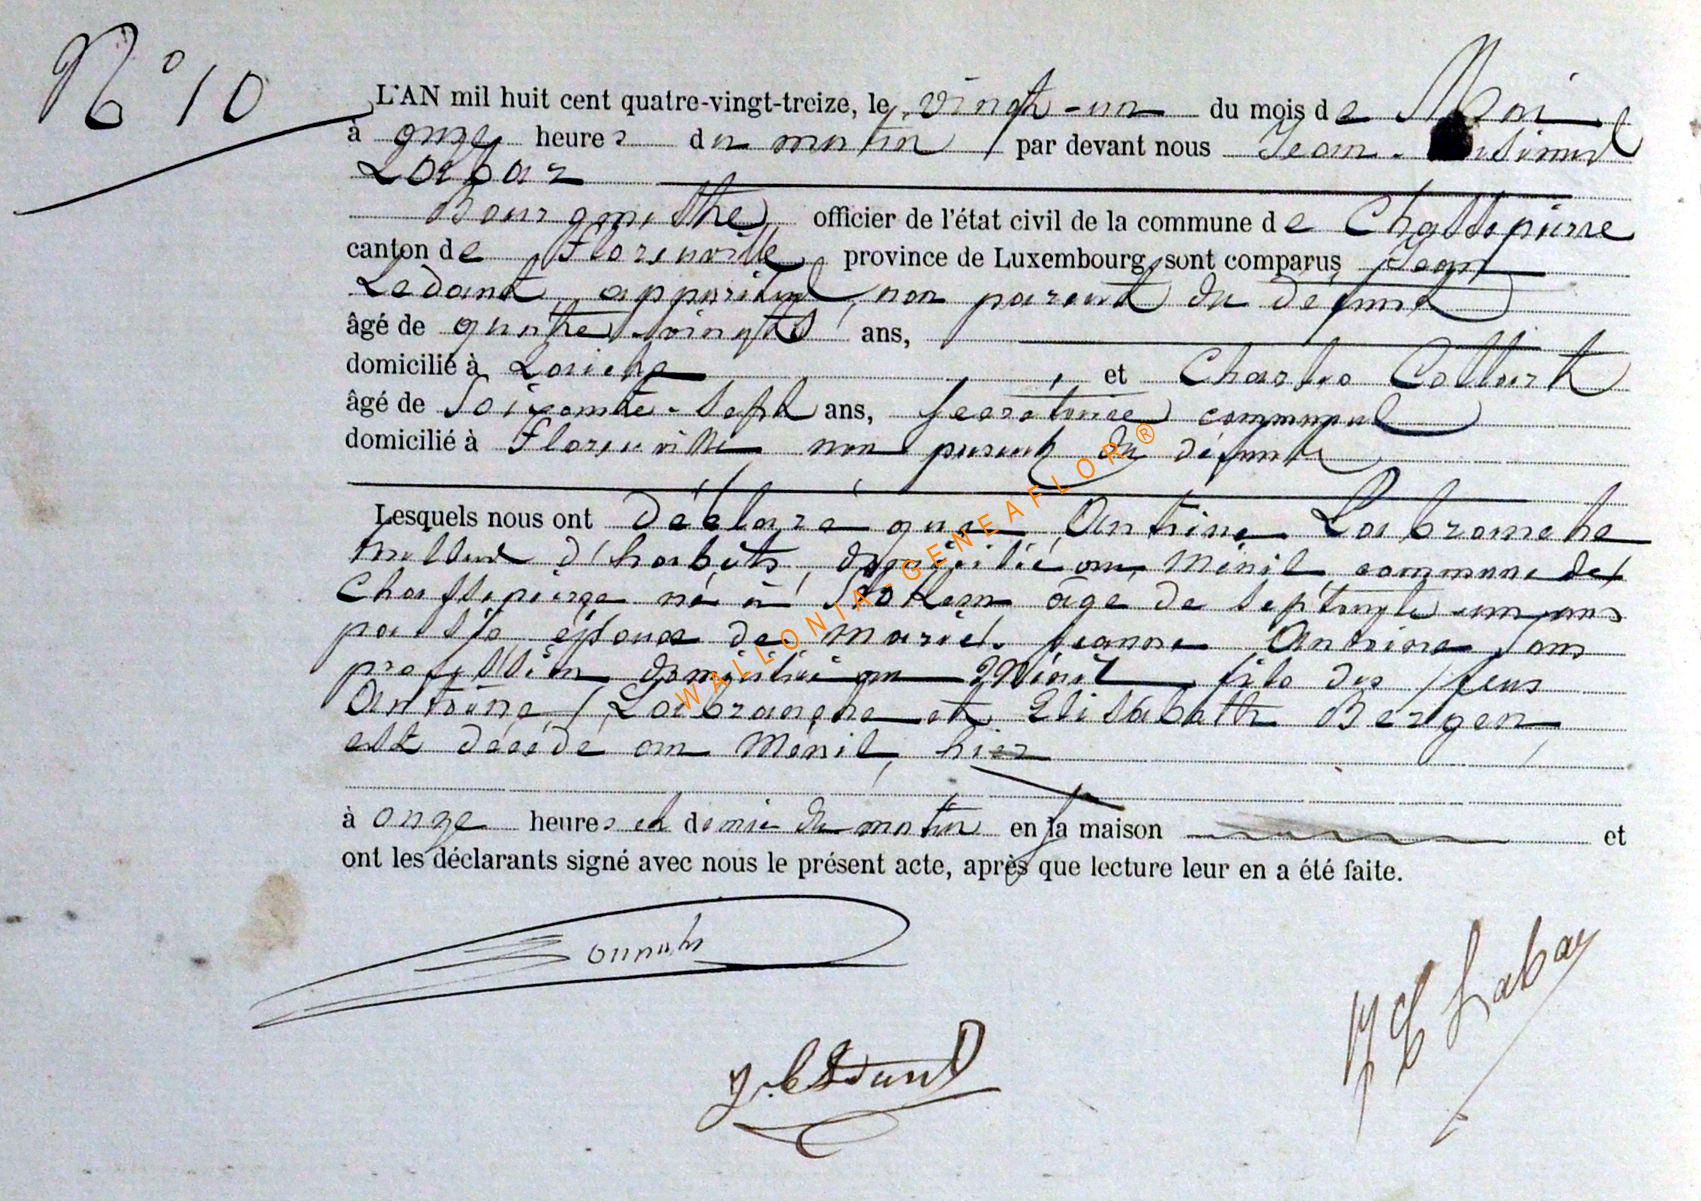 N° 10
L'AN mil huit cent quatre-vingt-treize, le vingt-un du mois de Mai
à onze heures du matin par devant nous Jean-
Labar
Bourgmestre officier de l'état civil de la commune de Chassepierre
canton de Florenville province de Luxembourg, sont comparus Jean
Ledant, appariteur, non parent du défunt
âgé de quatre-vingts ans,
domicilié à Laiche et Charles
âgé de Soixante-Sept ans, secrétaire communal
domicilié à Florenville non parent du défunt
Lesquels nous ont déclaré que Antoine Labranche
d'habits, domicilié au Ménil commune de
Chassepierre né à âgé de septante un ans
époux de Marie Jeanne Antoine Sans
profession domiciliée au Ménil, fils des feus
Antoine Labranche et Elisabeth Bergen,
est décédé au Ménil, hier
à onze heures et demie du matin en sa maison et
ont les déclarants signé avec nous le présent acte, après que lecture leur en a été faite.
J. Ledant
Labar
WALLONIA-GENEAFLOR®